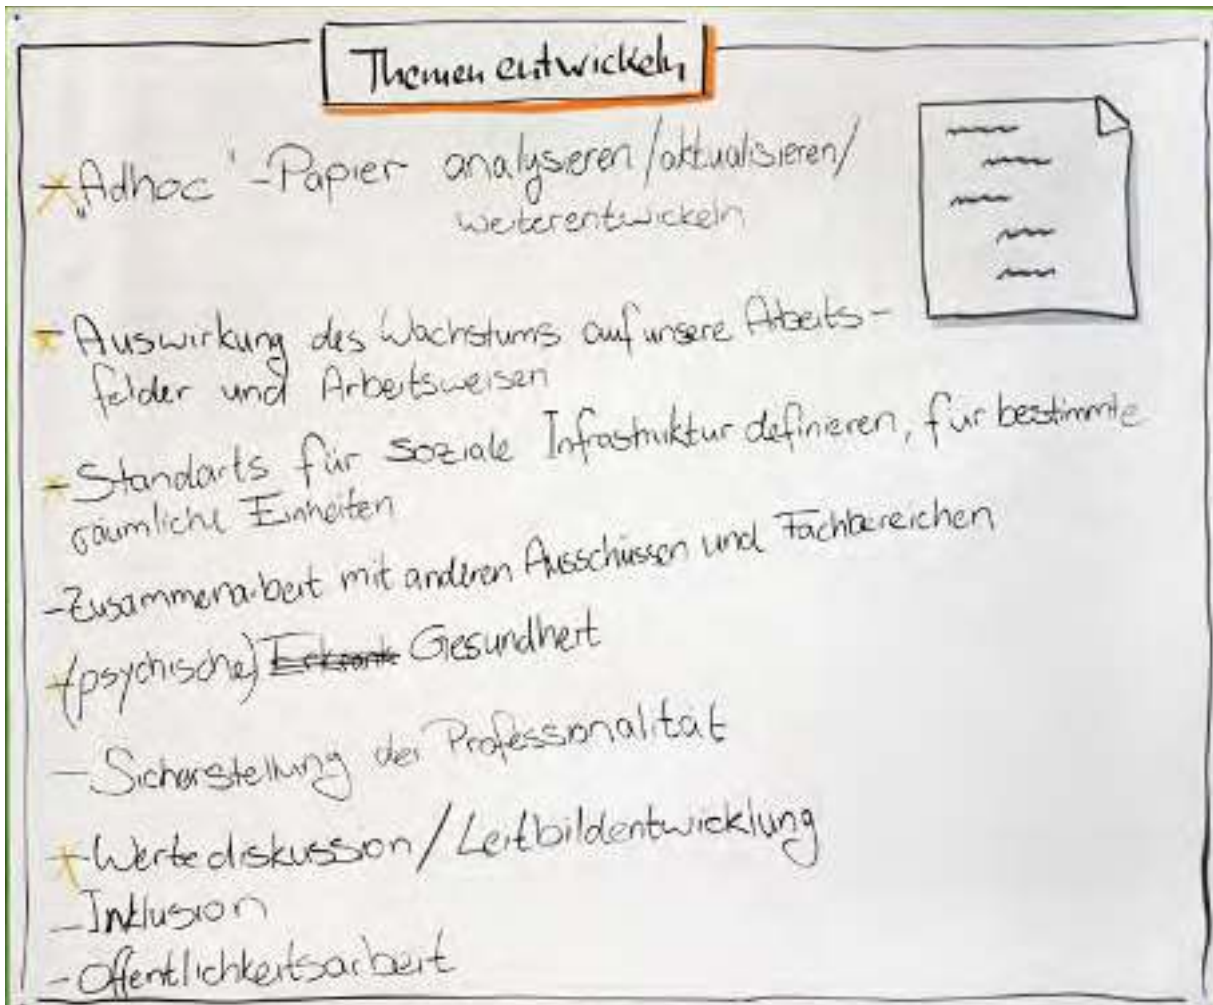 Themen entwickeln
- „Adhoc" - Papier analysieren/aktualisieren/
weiterentwickeln
- Auswirkung des Wachstums auf unsere Arbeits-
felder und Arbeitsweisen
- Standarts für soziale Infrastruktur definieren, für bestimmte
räumliche Einheiten
- Zusammenarbeit mit anderen Ausschüssen und Fachbereichen
- (psychische) Erkrank Gesundheit
- Sicherstellung der Professionalität
- Wertediskussion/Leitbildentwicklung
- Inklusion
- Öffentlichkeitsarbeit